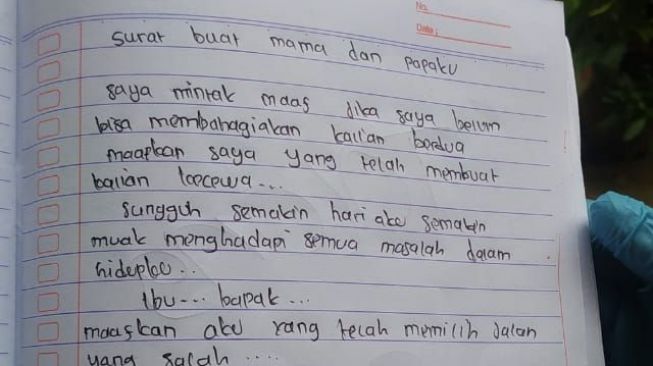 No.
Date:
surat buat mama dan papaku
saya mintak maas jika saya belum
bisa membahagiakan kalian berdua
maapkan saya yang telah membuat
kalian kecewa...
sungguh semakin hari aku semakin
muak menghadapi semua masalah dalam
hidupku..
Ibu... bapak...
maaskan aku yang telah memilih jalan
yang salah ....